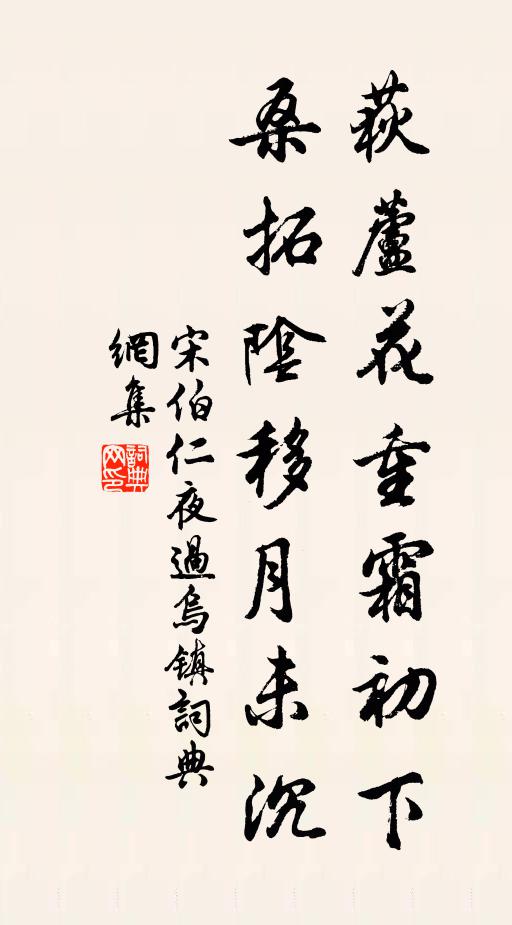 荻蘆花重霜初下
桑拓陰移月未沉
宋伯仁夜過烏鎮詞典
網集
詞典網印